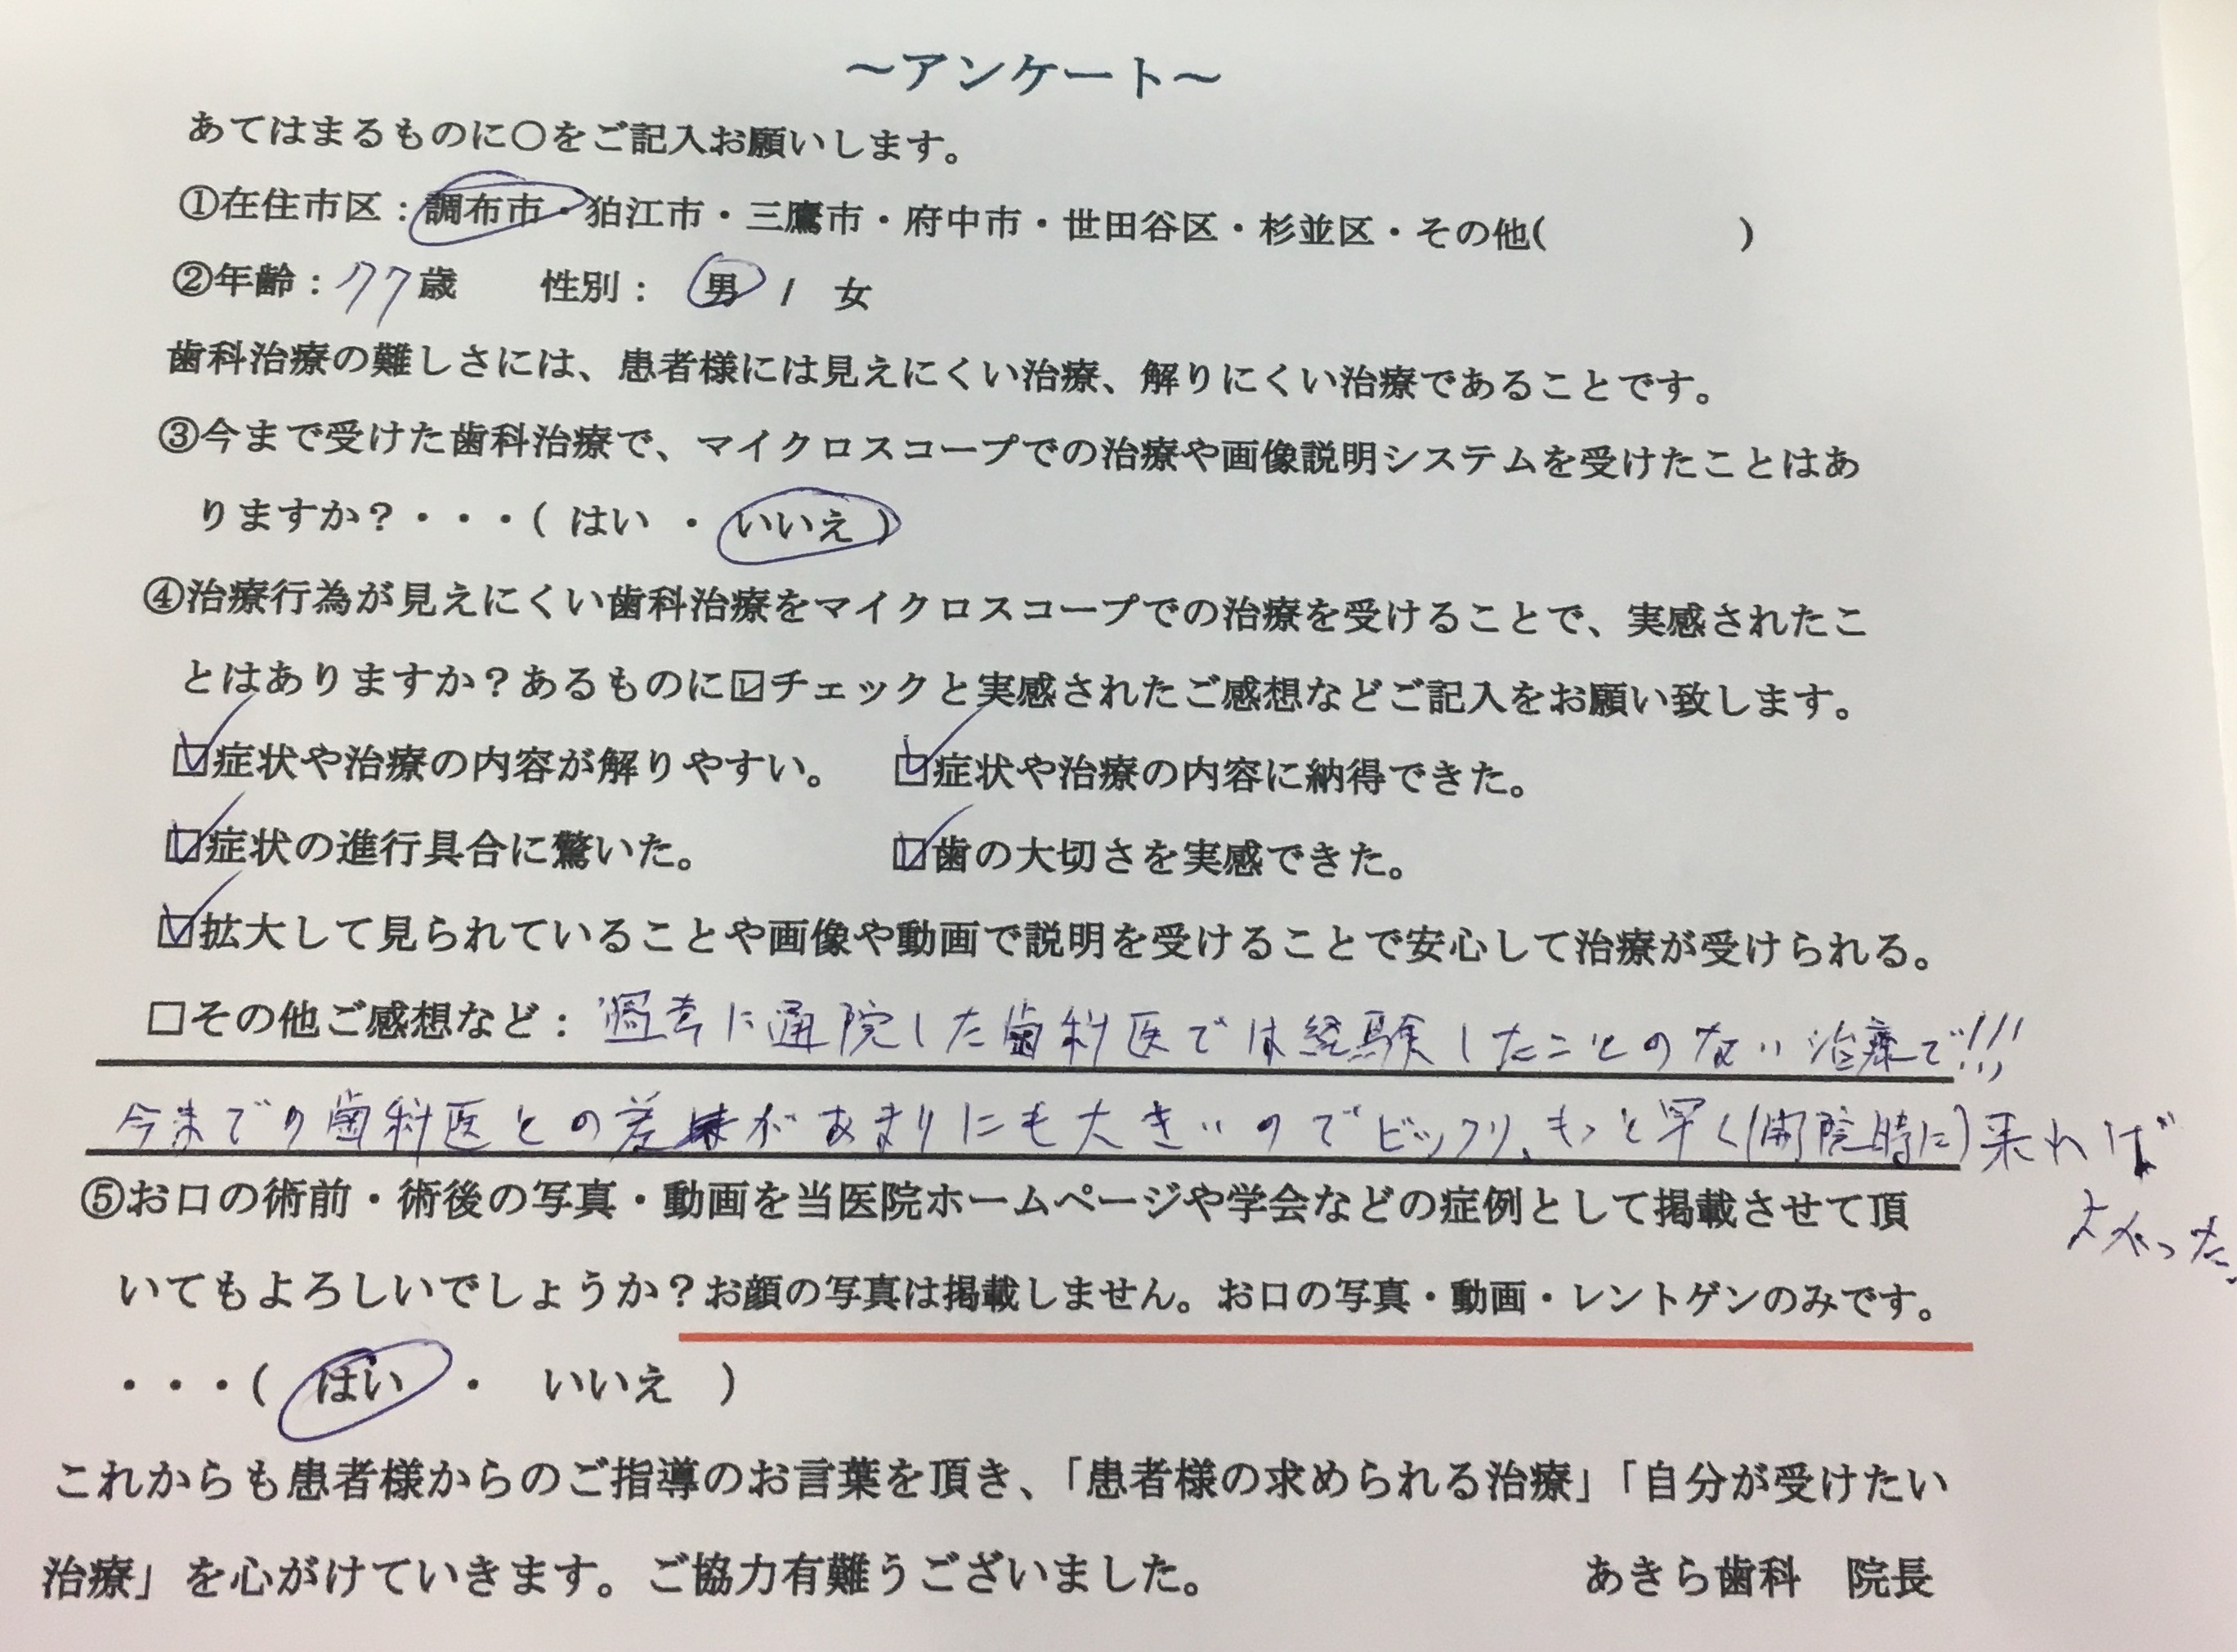 ～アンケート～
あてはまるものに○をご記入お願いします。
①在住市区：調布市・狛江市・三鷹市・府中市・世田谷区・杉並区・その他(　　　　　)
②年齢：77歳　　性別：　男　/　女
歯科治療の難しさには、患者様には見えにくい治療、解りにくい治療であることです。
③今まで受けた歯科治療で、マイクロスコープでの治療や画像説明システムを受けたことはあ
りますか？・・・( はい ・ いいえ )
④治療行為が見えにくい歯科治療をマイクロスコープでの治療を受けることで、実感されたこ
とはありますか？あるものに☑チェックと実感されたご感想などご記入をお願い致します。
☑症状や治療の内容が解りやすい。　☑症状や治療の内容に納得できた。
☑症状の進行具合に驚いた。　☑歯の大切さを実感できた。
☑拡大して見られていることや画像や動画で説明を受けることで安心して治療が受けられる。
□その他ご感想など：過去に通院した歯科医では経験したことのない治療で!!!
今までの歯科医との差があまりにも大きいのでビックリ、もっと早く(開院時に)来れば
よかった。
⑤お口の術前・術後の写真・動画を当医院ホームページや学会などの症例として掲載させて頂
いてもよろしいでしょうか？お顔の写真は掲載しません。お口の写真・動画・レントゲンのみです。
・・・(　はい　・　いいえ　)
これからも患者様からのご指導のお言葉を頂き、「患者様の求められる治療」「自分が受けたい
治療」を心がけていきます。ご協力有難うございました。　あきら歯科　院長